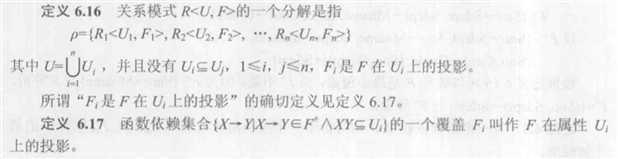 定义 6.16 关系模式 R<U, F>的一个分解是指
ρ={R₁<U₁, F₁>, R₂<U₂, F₂>, …, Rₙ<Uₙ, Fₙ>}
其中 U=⋃ᵢ₌₁ⁿ Uᵢ，并且没有 Uᵢ⊆Uⱼ, 1≤i, j≤n, Fᵢ是 F 在 Uᵢ上的投影。
所谓“Fᵢ是 F 在 Uᵢ上的投影”的确切定义见定义 6.17。
定义 6.17 函数依赖集合{X→Y|X→Y∈F⁺∧XY⊆Uᵢ}的一个覆盖 Fᵢ叫作 F 在属性 Uᵢ
上的投影。